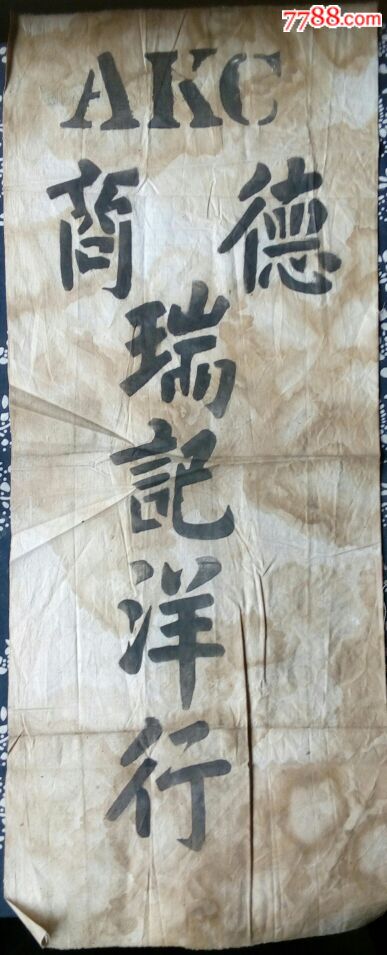 7788.com
AKC
德商
瑞記洋行